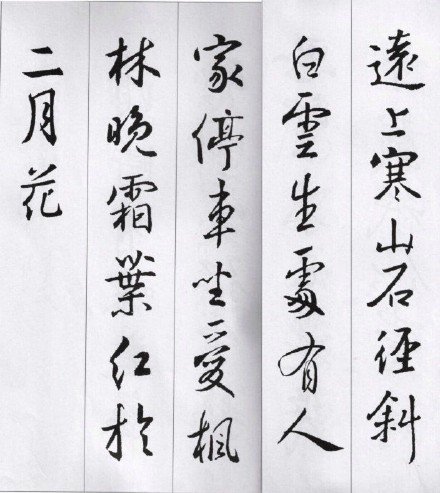 遠上寒山石徑斜
白雲生處有人
家停車坐愛楓
林晚霜葉紅於
二月花